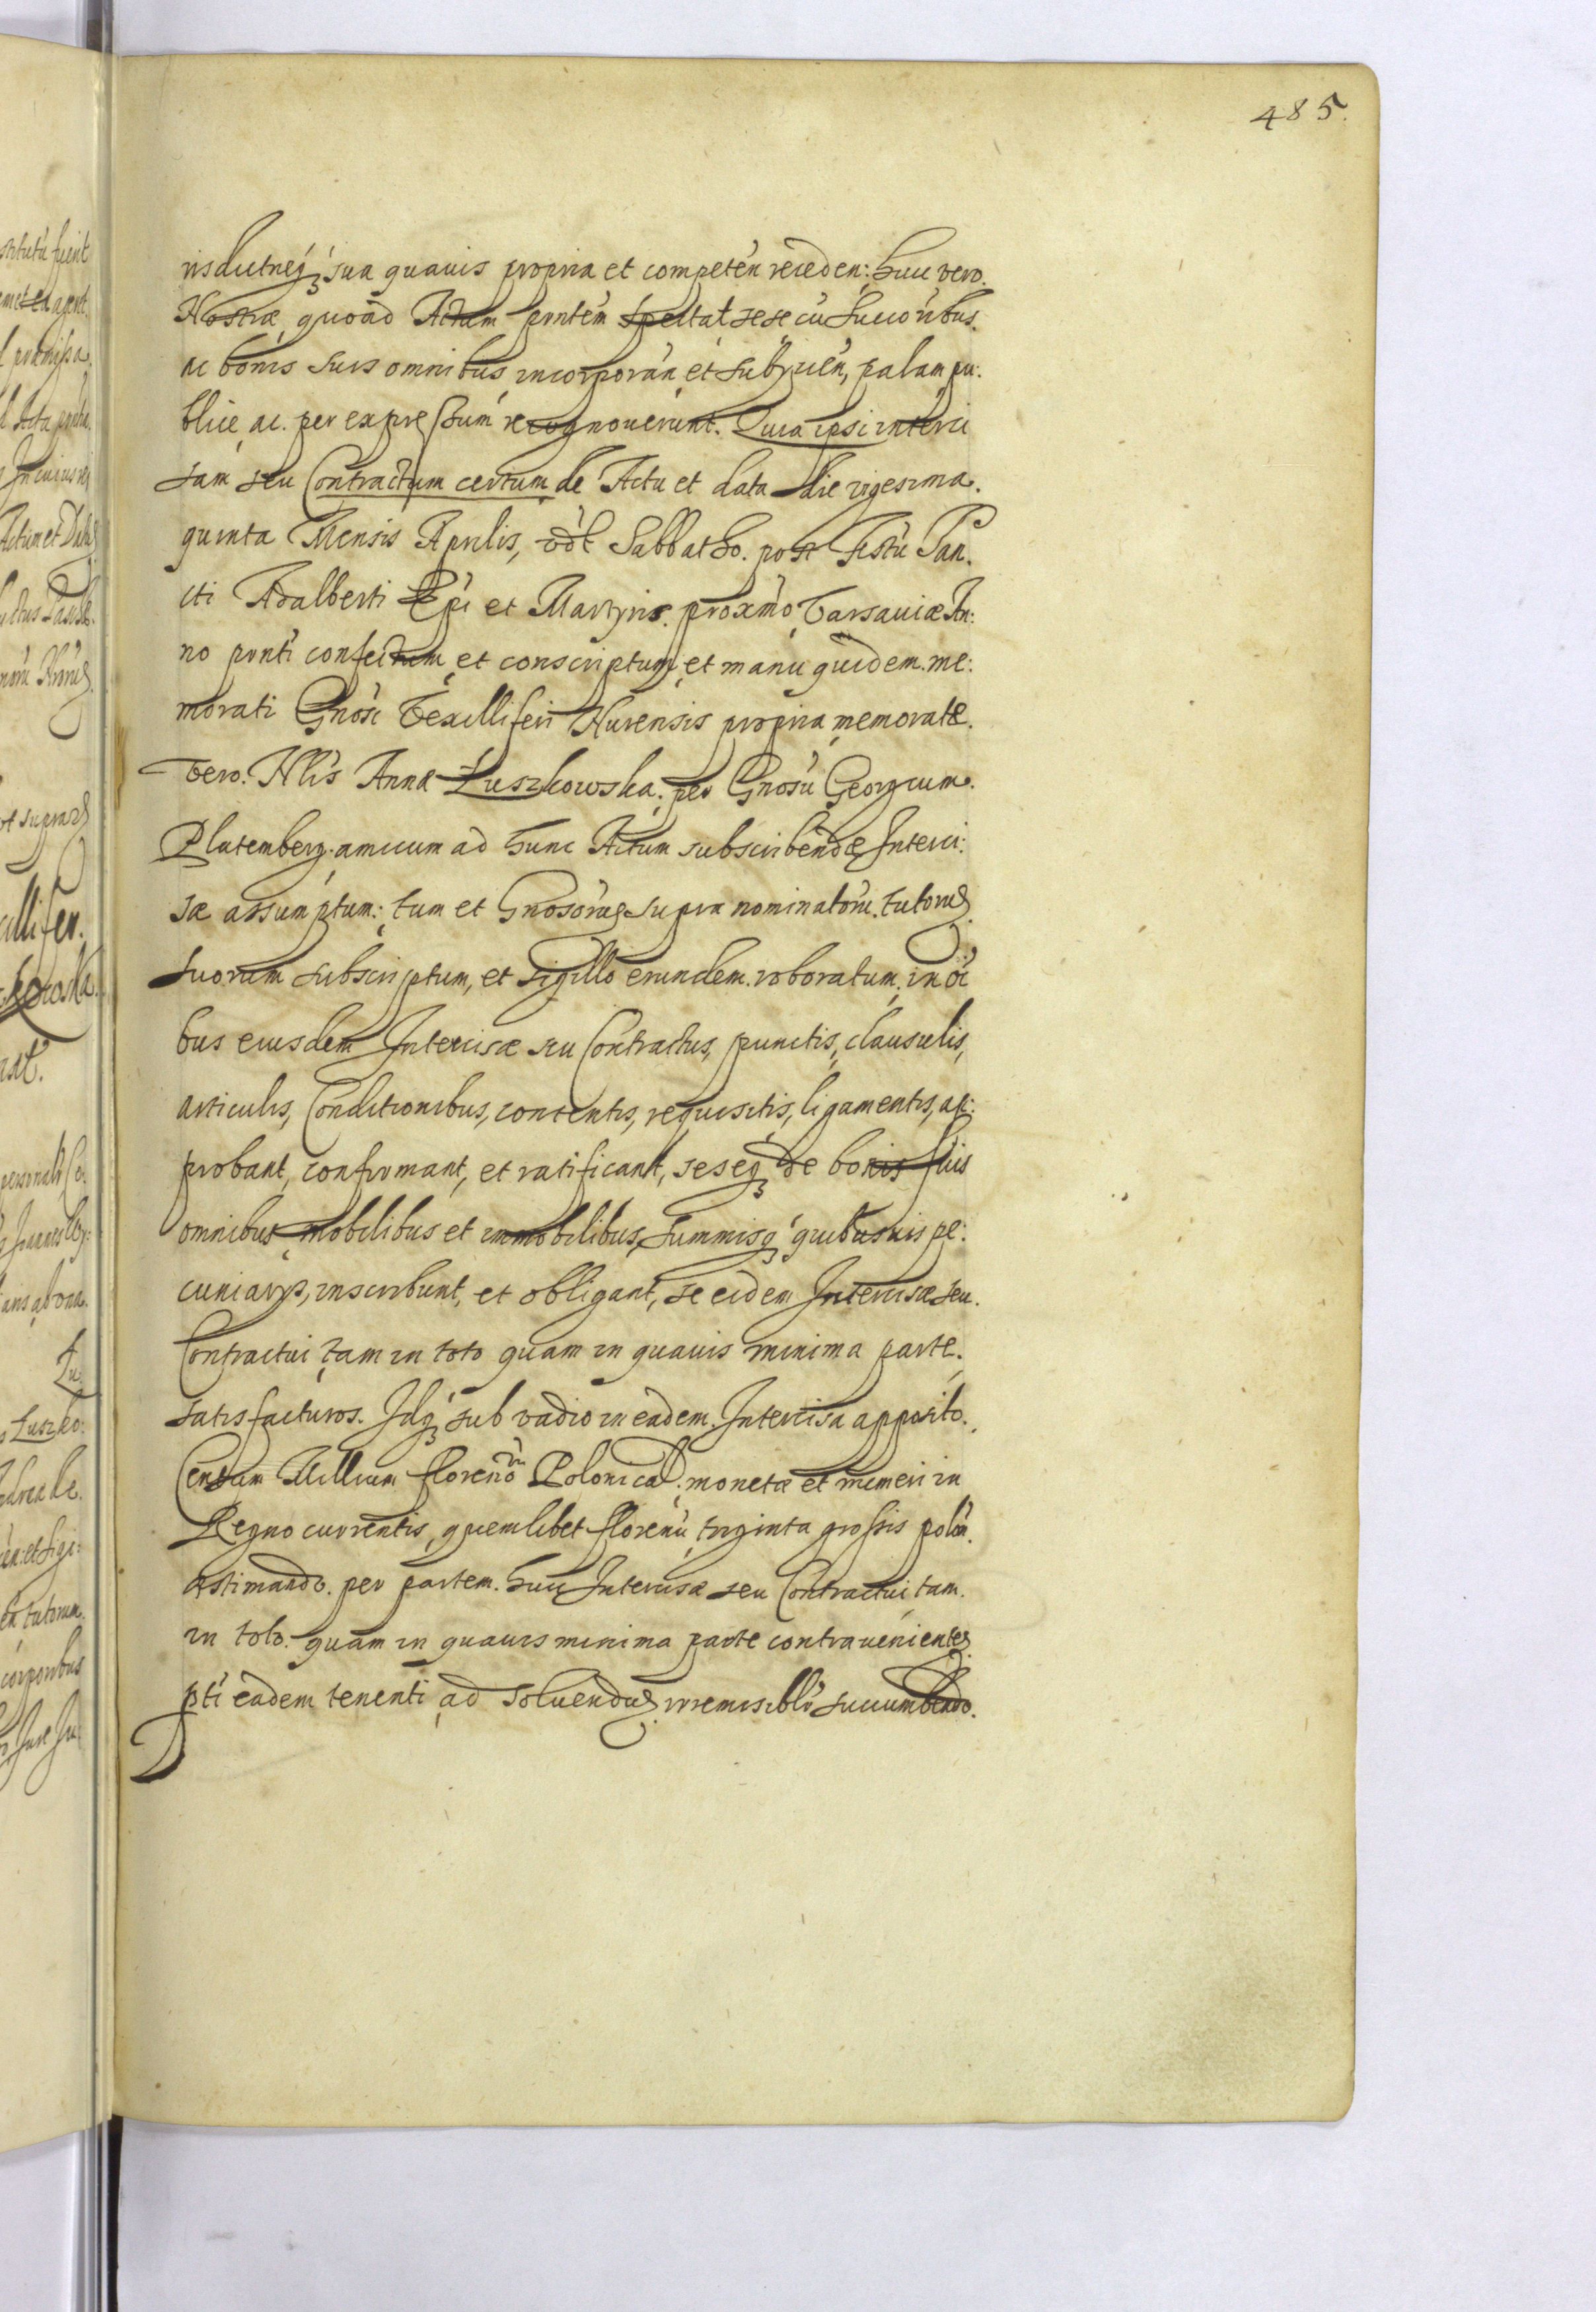 485.
risdictneq́ꝫ sua quauis propria et competen̄ receden: huic vero.
Nostræ quoad Actum pntém spectat sese cū Successoribus.
ac bonis suis omnibus incorporan̄ et subijcien̄, palam pu:
blice ac. per expressum recognouerunt. Quia ipsi interci
sam seu Contractum certum de Actu et data die vigesima.
quinta Mensis Aprilis, vdt̀ Sabbatho. post Festū San.
cti Adalberti Epi et Martyris. proxmo Varsauiæ An:
no pnti confectum et conscriptum et manu quidem. me:
morati Gnosi Vexilliferi Nurensis propria memoratæ.
Vero. Nlis Annæ Łuszkowska. per Gnosū Georgium.
Plutemberg. amicum ad hunc Actum subscribendæ Interci:
sæ assumptum: tum et Gnosorꝫ supra nominatorū. tutorꝫ
suorum subscriptum, et sigillo eorundem. roboratum, in oi
bus eiusdem Intercisæ seu Contractus, punctis, clausulis,
articulis, Conditionibus, contentis, requisitis, ligamentis, ap:
probant, confirmant, et ratificant, seseqꝫ de bonis suis
omnibus mobilibus et immobilibus, summisqꝫ quibusuis pe:
cuniarijs, inscribunt, et obligant, se eidem Intercisæ seu.
Contractui tam in toto quam in quauis minima parte.
satisfacturos. Idqꝫ sub vadio in eadem. Intercisa apposito.
Centum Millium florenorū Polonical. monetæ et numeri in
Regno currentis, quemlibet florenū triginta grossis polon̄.
æstimando. per partem. huic Intercisæ seu Contractui tam.
in toto. quam in quauis minima parte contrauenientꝫ
pti eadem tenenti ad soluendꝫ irremisiblr̄ succumbendo.